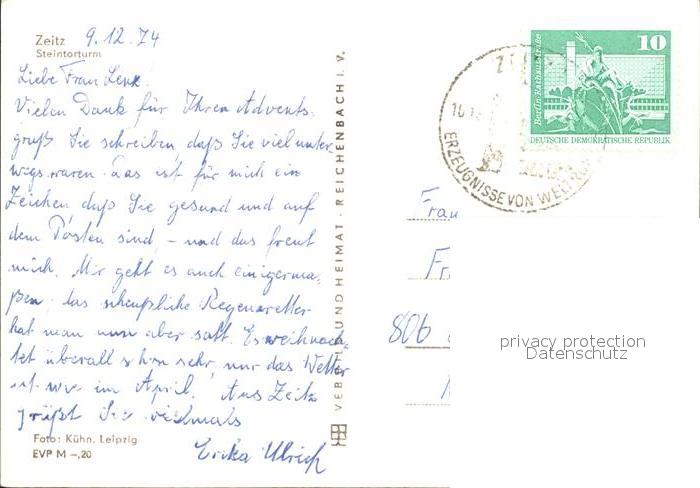 Zeitz 9.12.74
Steintorturm
Liebe Frau Lenz!
Vielen Dank für Ihren Advents-
gruß. Sie schreiben daß Sie viel unter-
wegs waren. Das ist für mich ein
Zeichen daß Sie gesund und auf
dem Posten sind, – und das freut
mich. Mir geht es auch einigerma-
ßen, das scheußliche Regenwetter
hat man nun aber satt. Es weihnach
tet überall schon sehr, nur das Wetter
ist wie im April. Aus Zeitz
grüßt Sie vielmals
Erika Ulrich
Foto: Kühn, Leipzig
EVP M –,20
VEB BILD UND HEIMAT · REICHENBACH I. V.
10
Berlin, Rathausstraße
DEUTSCHE DEMOKRATISCHE REPUBLIK
ERZEUGNISSE VON
Frau
806
privacy protection
Datenschutz